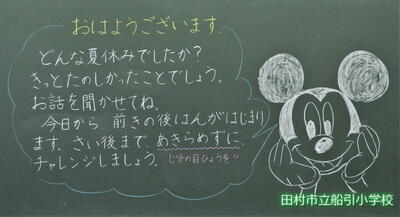 おはようございます.
どんな夏休みでしたか?
きっとたのしかったことでしょう。
お話を聞かせてね。
今日から、前きの後はんがはじまり
ます。さい後まで、あきらめずに、
チャレンジしましょう。じ分の目ひょうを!!
田村市立船引小学校